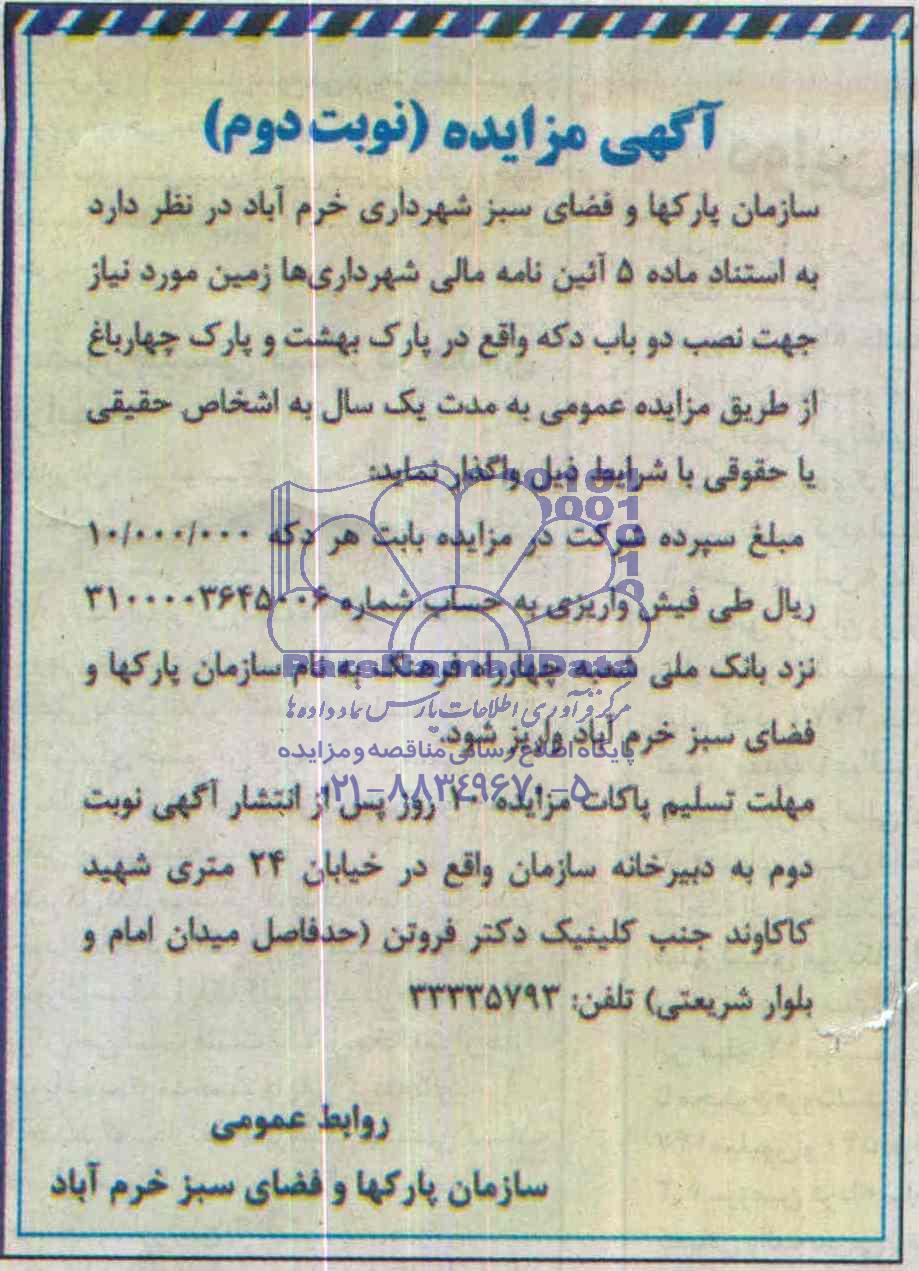 آگهی مزایده (نوبت دوم)
سازمان پارکها و فضای سبز شهرداری خرم آباد در نظر دارد
به استناد ماده ۵ آئین نامه مالی شهرداری‌ها زمین مورد نیاز
جهت نصب دو باب دکه واقع در پارک بهشت و پارک چهارباغ
از طریق مزایده عمومی به مدت یک سال به اشخاص حقیقی
یا حقوقی با شرایط ذیل واگذار نماید:
مبلغ سپرده شرکت در مزایده بابت هر دکه ۱۰/۰۰۰/۰۰۰
ریال طی فیش واریزی به حساب شماره ۳۱۰۰۰۰۳۶۴۵۰۰۶
نزد بانک ملی شعبه چهارراه فرهنگ به نام سازمان پارکها و
فضای سبز خرم آباد واریز شود.
مهلت تسلیم پاکات مزایده ۱۰ روز پس از انتشار آگهی نوبت
دوم به دبیرخانه سازمان واقع در خیابان ۲۴ متری شهید
کاکاوند جنب کلینیک دکتر فروتن (حدفاصل میدان امام و
بلوار شریعتی) تلفن: ۳۳۳۳۵۷۹۳
روابط عمومی
سازمان پارکها و فضای سبز خرم آباد
ParsNamadData
مرکز فرآوری اطلاعات پارس نماد داده ها
پایگاه اطلاع رسانی مناقصه و مزایده
۰۲۱-۸۸۳۴۹۶۷۰-۵